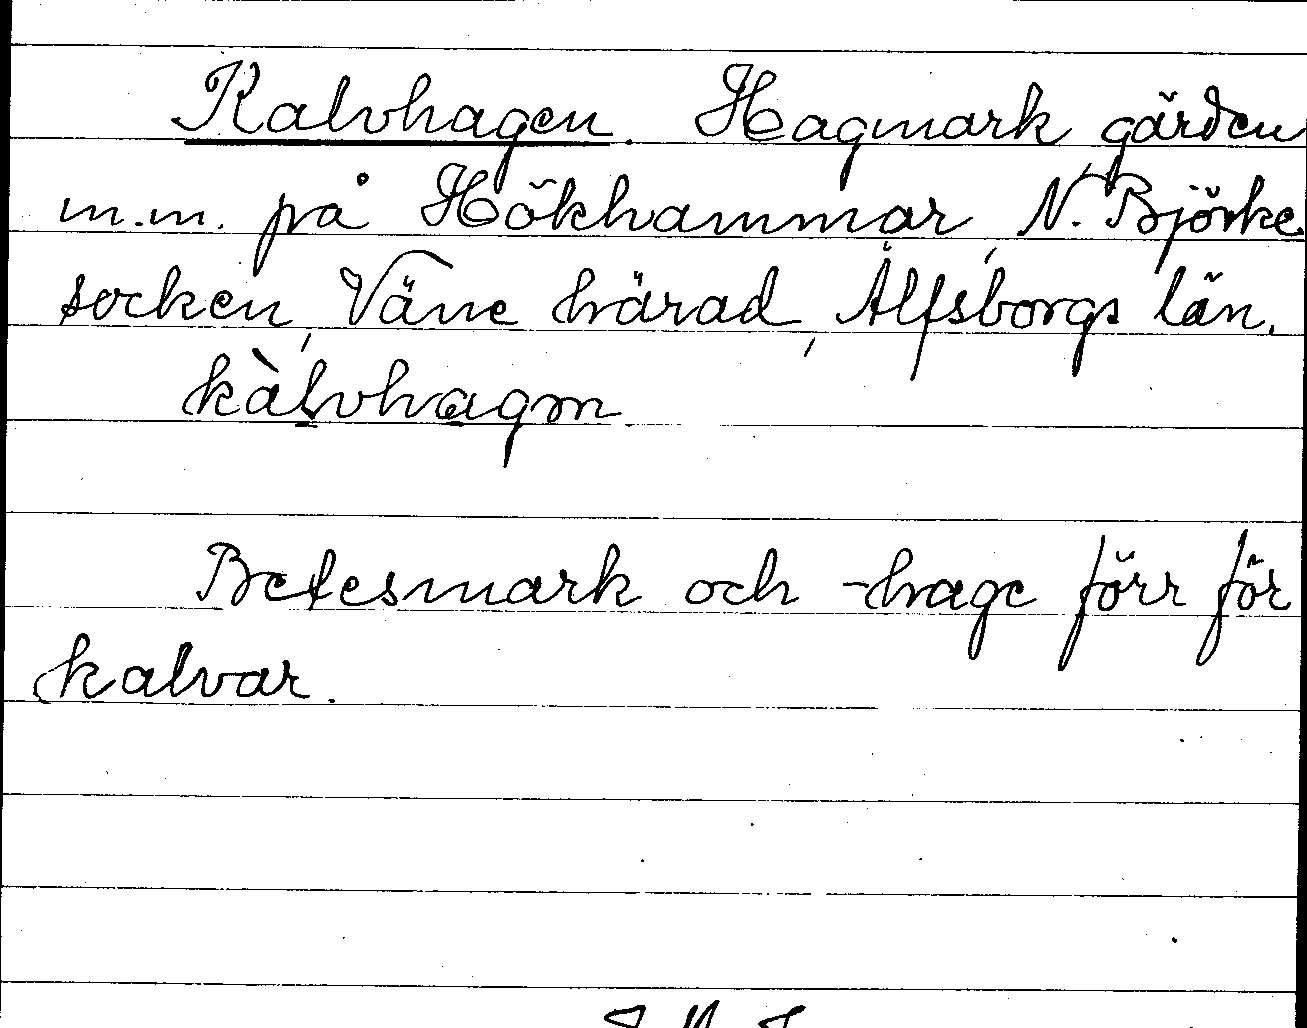 Kalvhagen. Hagmark, gärden
m.m. på Hökhammar, N. Björke
socken, Väne härad, Älfsborgs län.
kàlvhagm
Betesmark och -hage förr för
kalvar.